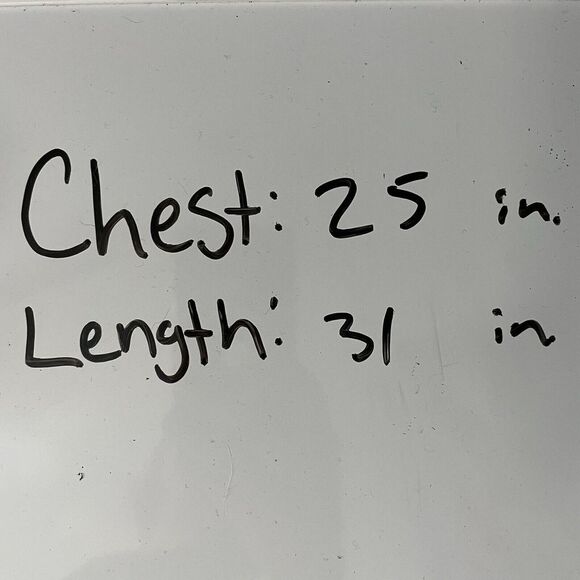 Chest: 25 in.
Length: 31 in